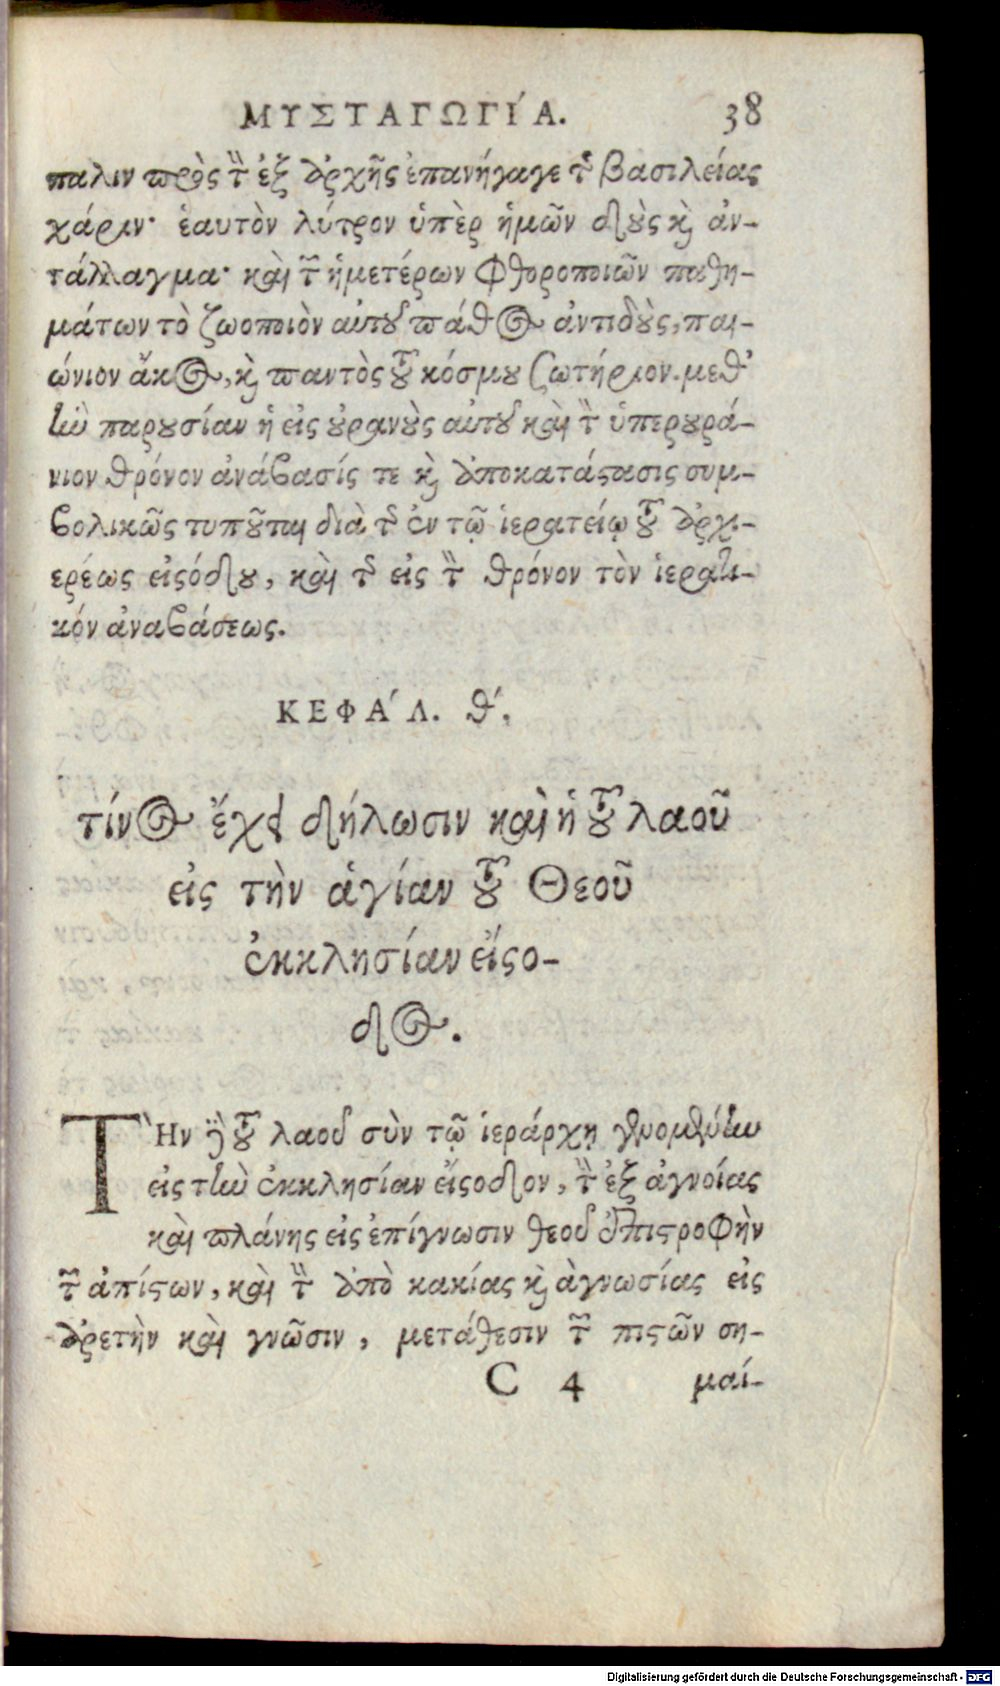 ΜΥΣΤΑΓΩΓΙ΄Α. 38
παλιν πρὸς τὴν ἐξ ἀρχῆς ἐπανήγαγε τῆς βασιλείας
χάριν· ἑαυτὸν λύτρον ὑπὲρ ἡμῶν δοὺς καὶ ἀν-
τάλλαγμα· καὶ τῶν ἡμετέρων φθοροποιῶν παθη-
μάτων τὸ ζωοποιὸν αὐτοῦ πάθος ἀντιδοὺς, παι-
ώνιον ἄκος, καὶ παντὸς τοῦ κόσμου σωτήριον. μεθ᾽
ἣν παρουσίαν ἡ εἰς οὐρανοὺς αὐτοῦ καὶ τὸν ὑπερουρά-
νιον θρόνον ἀνάβασίς τε καὶ ἀποκατάστασις συμ-
βολικῶς τυποῦται διὰ τῆς ἐν τῷ ἱερατείῳ τοῦ ἀρχι-
ερέως εἰσόδου, καὶ τῆς εἰς τὸν θρόνον τὸν ἱερατι-
κόν ἀναβάσεως.
ΚΕΦΑ΄Λ. θ΄.
τίνος ἔχει δήλωσιν καὶ ἡ τοῦ λαοῦ
εἰς τὴν ἁγίαν τοῦ Θεοῦ
ἐκκλησίαν εἴσο-
δος.
ΤῊν δὲ τοῦ λαοῦ σὺν τῷ ἱεράρχῃ γινομένην
εἰς τὴν ἐκκλησίαν εἴσοδον, τὴν ἐξ ἀγνοίας
καὶ πλάνης εἰς ἐπίγνωσιν θεοῦ ἐπιστροφὴν
τῶν ἀπίστων, καὶ τὴν ἀπὸ κακίας καὶ ἀγνωσίας εἰς
ἀρετὴν καὶ γνῶσιν, μετάθεσιν τῶν πιστῶν ση-
C 4 μαί-
Digitalisierung gefördert durch die Deutsche Forschungsgemeinschaft - DFG